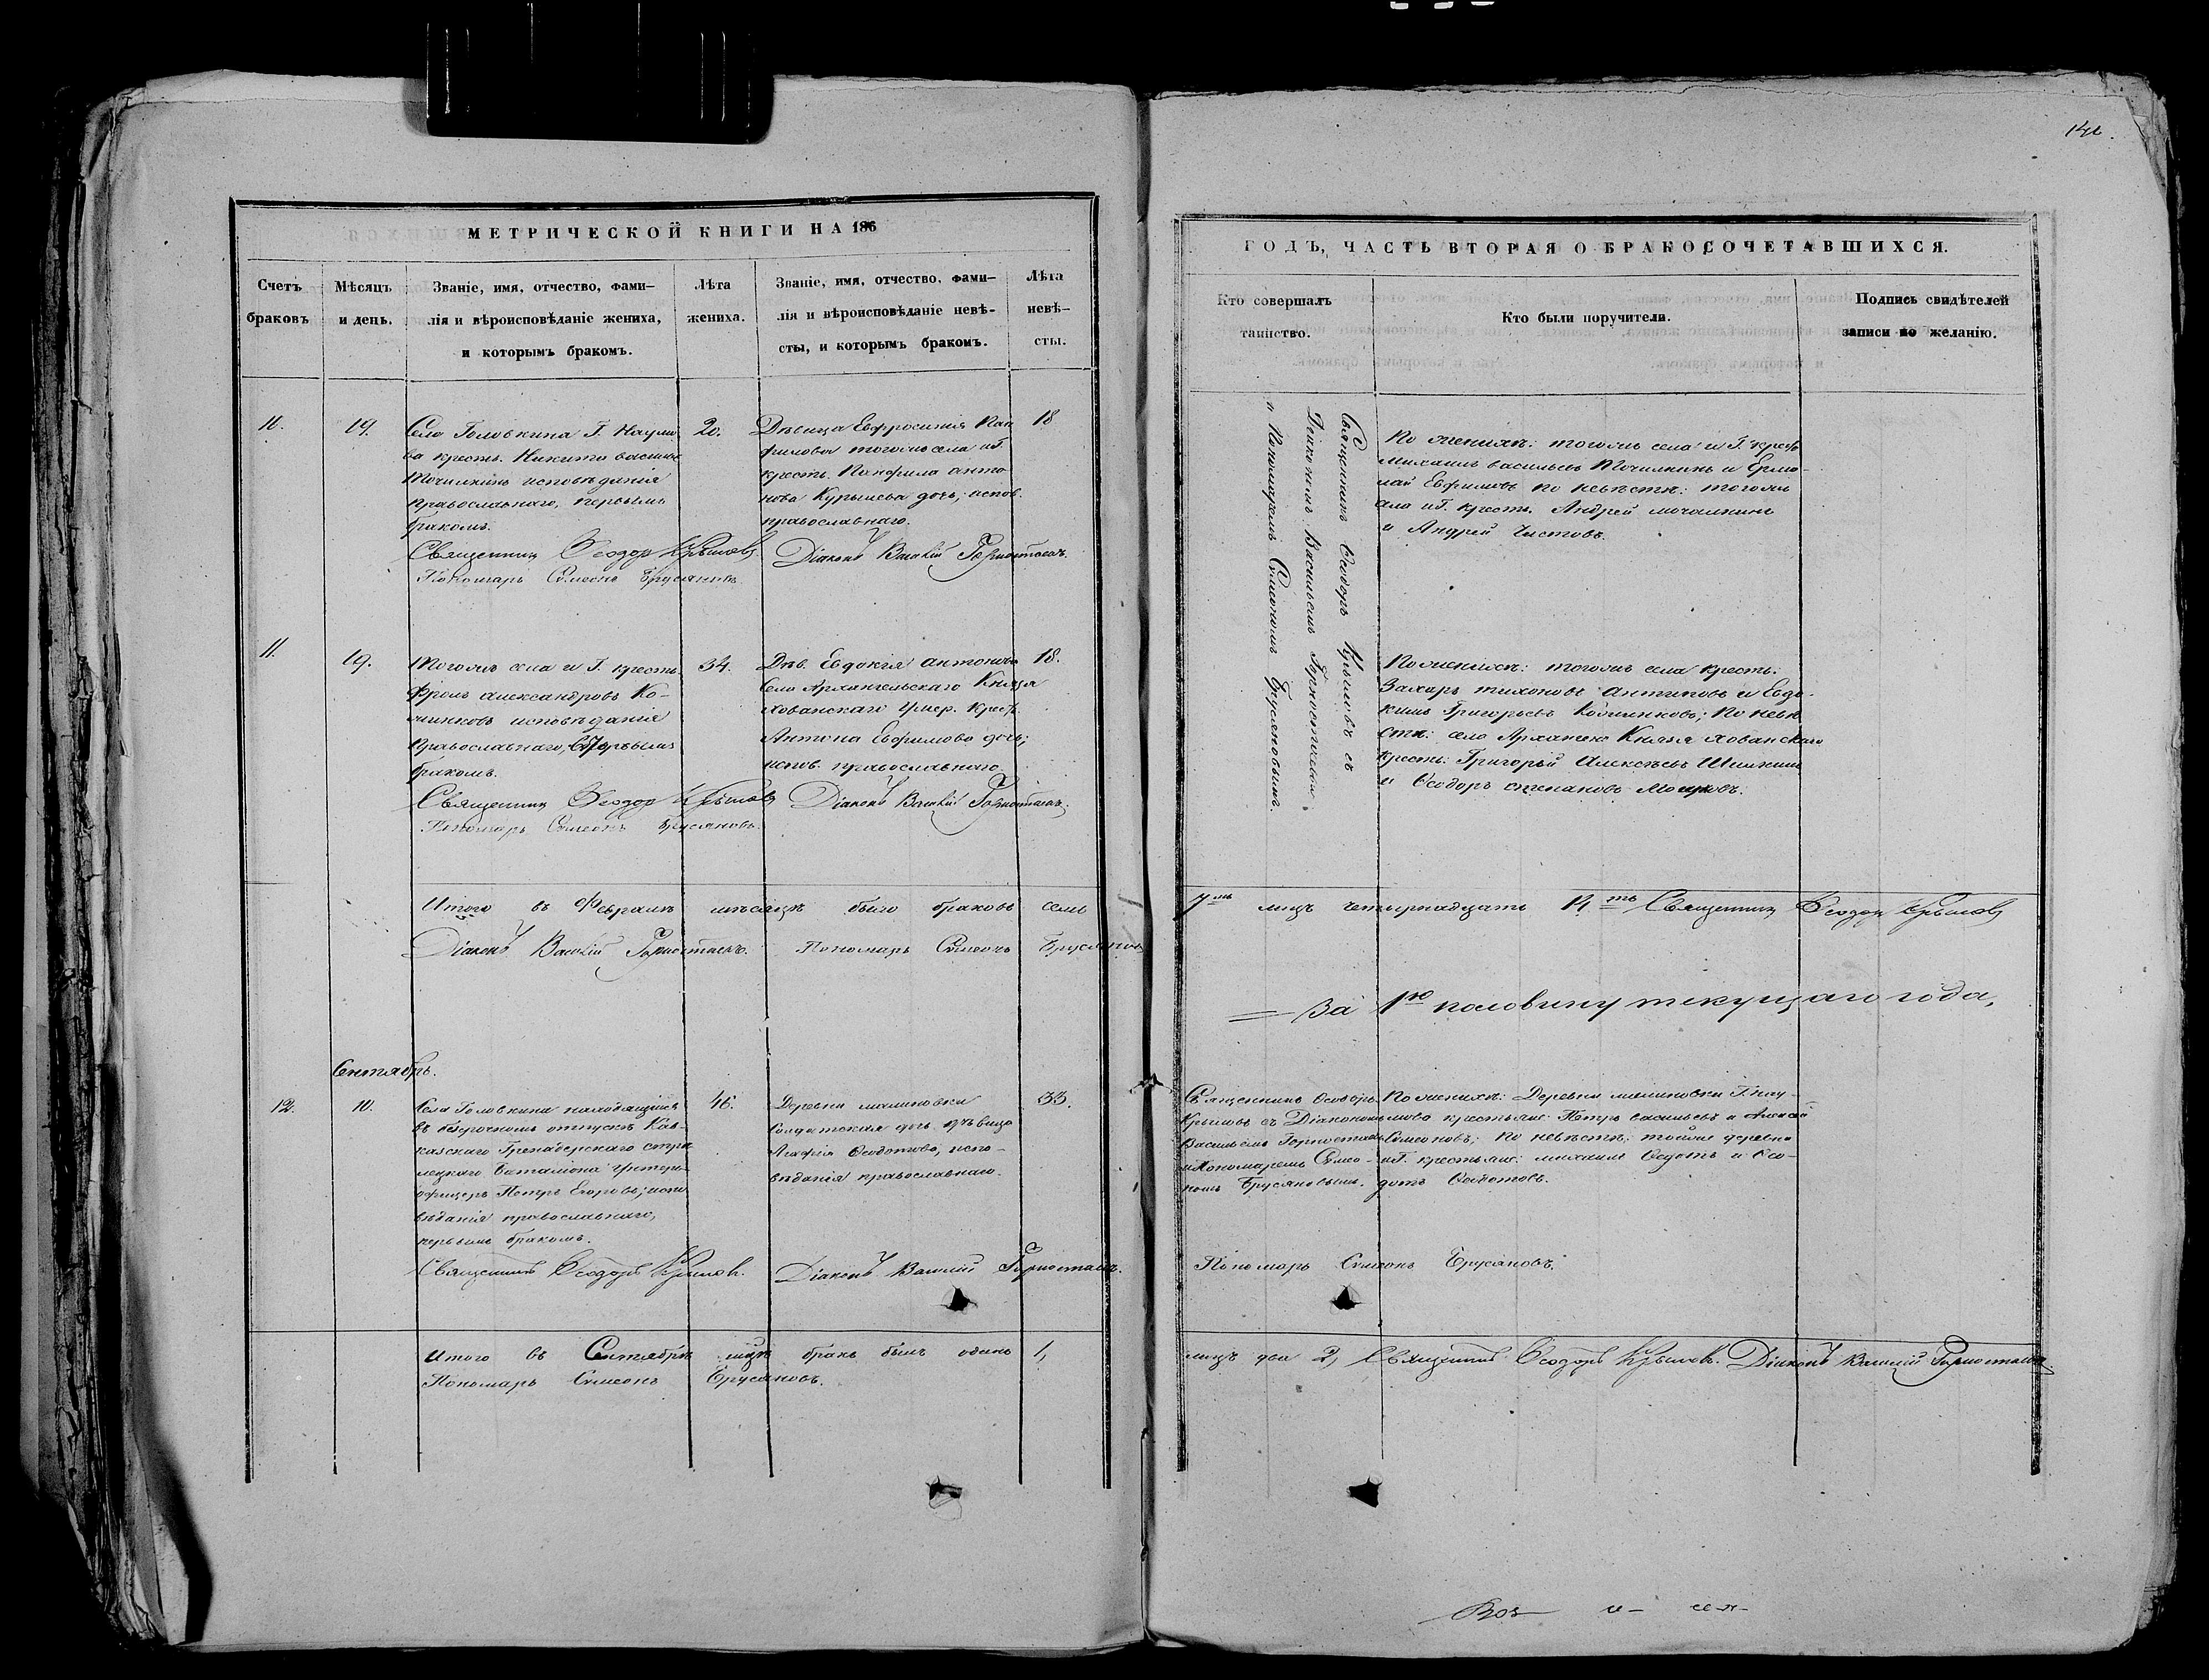 142.
МЕТРИЧЕСКОЙ КНИГИ НА 186
Счетъ браковъ.
Мѣсяцъ и день.
Званіе, имя, отчество, фами-
лія и вѣроисповѣданіе жениха,
и которымъ бракомъ.
Лѣта жениха.
Званіе, имя, отчество, фами-
лія и вѣроисповѣданіе невѣ-
сты, и которымъ бракомъ.
Лѣта невѣ-
сты.
10.
19.
Село Головкина Г. Наумо
ва крестьᵢ. Никита Васильевъ
Точилкинъ исповѣданія
православнаго, первымъ
бракомъ.
20.
Дѣвица Евфросинія Пан
филова тогожъ села и Г.
крестьᵢ. Панфила Анто
нова Курышева дочь; испов.
православнаго.
18
Священникъ Ѳеодоръ Крыловъ.
Діаконъ Василій Горностаевъ.
Пономарь Сѵмеонъ Брусяновъ.
11.
19.
Тогожъ села и Г. крестьᵢ.
Фролъ Александровъ Ко-
православнаго,
бракомъ.
34.
Дѣв. Евдокія Антонова
Село Архангельскаго Князя
Хованскаго умер. крест.
Антона Евфимова дочь;
испов. православнаго.
18.
Священникъ Ѳеодоръ Крыловъ
Діаконъ Василій Горностаевъ.
Пономарь Сѵмеонъ Брусяновъ.
Итого въ Февралѣ мѣсяцѣ было браковъ семь
Діаконъ Василій Горностаевъ. Пономарь Сѵмеонъ Брусяновъ
Сентябрь.
12.
10.
Села Головкина находящійся
въ безсрочномъ отпускѣ Кав-
казскаго Гренадерскаго стрѣ
лецкаго баталіона Унтеръ-
офицеръ Петръ Егоровъ; испо
вѣданія православнаго,
первымъ бракомъ.
46.
Деревни Малиновки
Солдатская дочь дѣвица
Агафія Ѳеодотова, испо-
вѣданія православнаго.
33.
Священникъ Ѳеодоръ Крыловъ.
Діаконъ Василій Горностаевъ.
Итого въ Сентябрѣ мцѣ бракъ былъ одинъ 1,
Пономарь Сѵмеонъ Брусяновъ.
ГОДЪ, ЧАСТЬ ВТОРАЯ О БРАКОСОЧЕТАВШИХСЯ.
Кто совершалъ
таинство.
Кто были поручители.
Подпись свидѣтелей
записи по желанію.
Священникъ Ѳеодоръ Крыловъ съ
Діакономъ Василіемъ Горностаевымъ
и Пономаремъ Сѵмеономъ Брусяновымъ.
По женихѣ: тогожъ села и Г. крест
Михаилъ Васильевъ Точилкинъ и Ермо-
лай Евфимовъ по невѣстѣ: тогожъ
села и Г. крестьᵢ. Андрей Мочалкинъ
и Андрей Чистовъ.
По женихѣ: тогожъ села крестьᵢ.
Захаръ Тихоновъ Антиповъ и Евдо-
кимъ Григорьевъ; По невѣ
стѣ: село Арханг. Князя Хованскаго
крестьᵢ: Григорій Алексѣевъ
и Ѳеодоръ Степановъ
7мь лицъ четырнадцать 14ть Священникъ Ѳеодоръ Крыловъ
За 1ю половину текущаго года,
Священникъ Ѳеодоръ
Крыловъ съ Діакономъ
Василіемъ Горностаевымъ
и Пономаремъ Сѵмео-
номъ Брусяновымъ.
По женихѣ: Деревни Малиновки Г. Нау-
мова крестьяне: Петръ Васильевъ и Алексѣй
Сѵмеоновъ; по невѣстѣ: тойже деревни
и Г. крестьяне: Михаилъ Ѳедотъ и Ѳео-
дотъ Ѳедотов.
Пономарь Сѵмеонъ Брусяновъ.
лицъ два 2, Священникъ Ѳеодоръ Крыловъ. Діаконъ Василій Горностаевъ